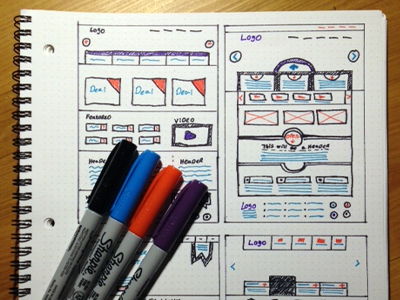 LOGO
Deal
Deal
Deal
FEATURED
VIDEO
HEADER
HEADER
LOGO
This will be a Header
LOGO
LOGO
Sharpie
Sharpie